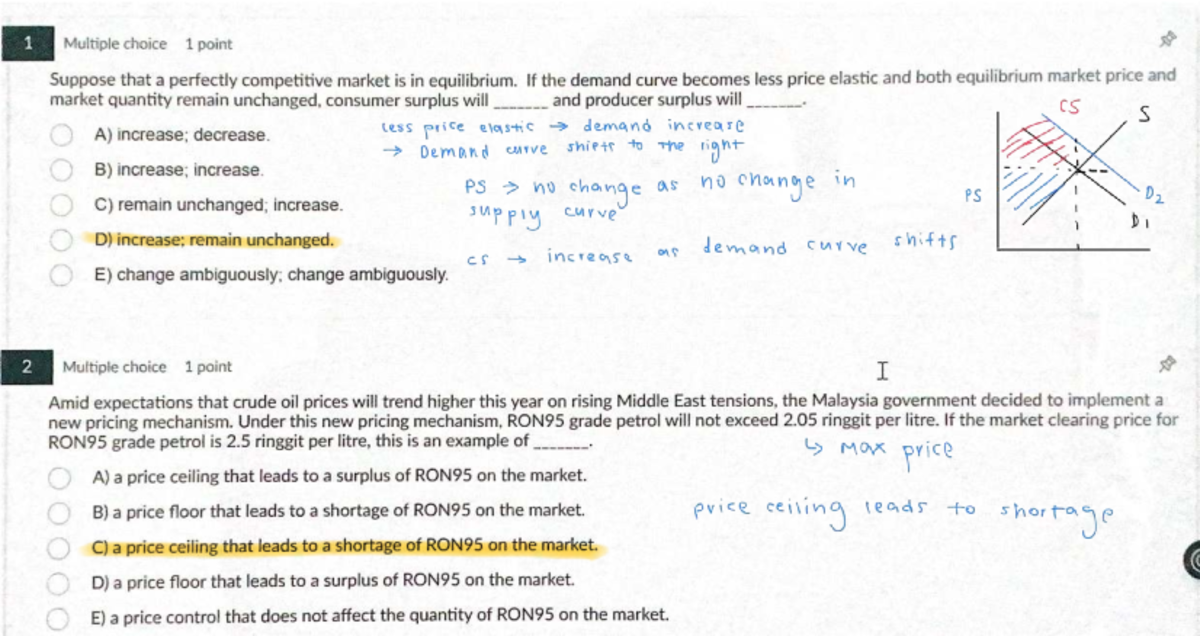 1 Multiple choice 1 point
Suppose that a perfectly competitive market is in equilibrium. If the demand curve becomes less price elastic and both equilibrium market price and
market quantity remain unchanged, consumer surplus will _______ and producer surplus will _______.
CS
S
A) increase; decrease.
less price elastic → demand increase
→ Demand curve shifts to the right
B) increase; increase.
PS → no change as no change in
supply curve
PS
D2
C) remain unchanged; increase.
D1
D) increase; remain unchanged.
cs → increase as demand curve shifts
E) change ambiguously; change ambiguously.
2 Multiple choice 1 point
Amid expectations that crude oil prices will trend higher this year on rising Middle East tensions, the Malaysia government decided to implement a
new pricing mechanism. Under this new pricing mechanism, RON95 grade petrol will not exceed 2.05 ringgit per litre. If the market clearing price for
RON95 grade petrol is 2.5 ringgit per litre, this is an example of _______.
↳ Max price
A) a price ceiling that leads to a surplus of RON95 on the market.
B) a price floor that leads to a shortage of RON95 on the market.
price ceiling leads to shortage
C) a price ceiling that leads to a shortage of RON95 on the market.
D) a price floor that leads to a surplus of RON95 on the market.
E) a price control that does not affect the quantity of RON95 on the market.